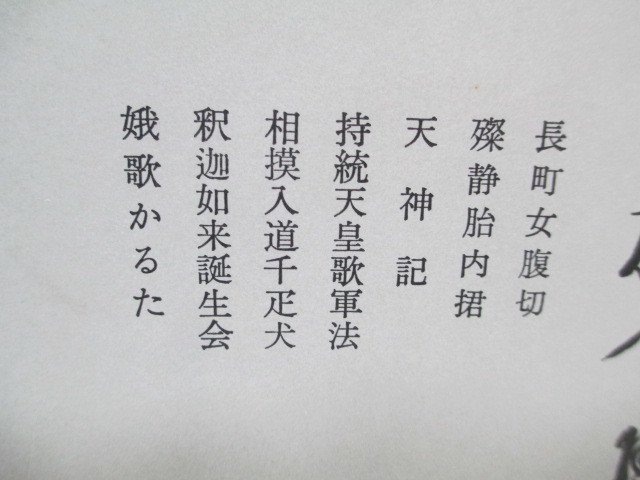 長町女腹切
殩静胎内捃
天神記
持統天皇歌軍法
相摸入道千疋犬
釈迦如来誕生会
娥歌かるた